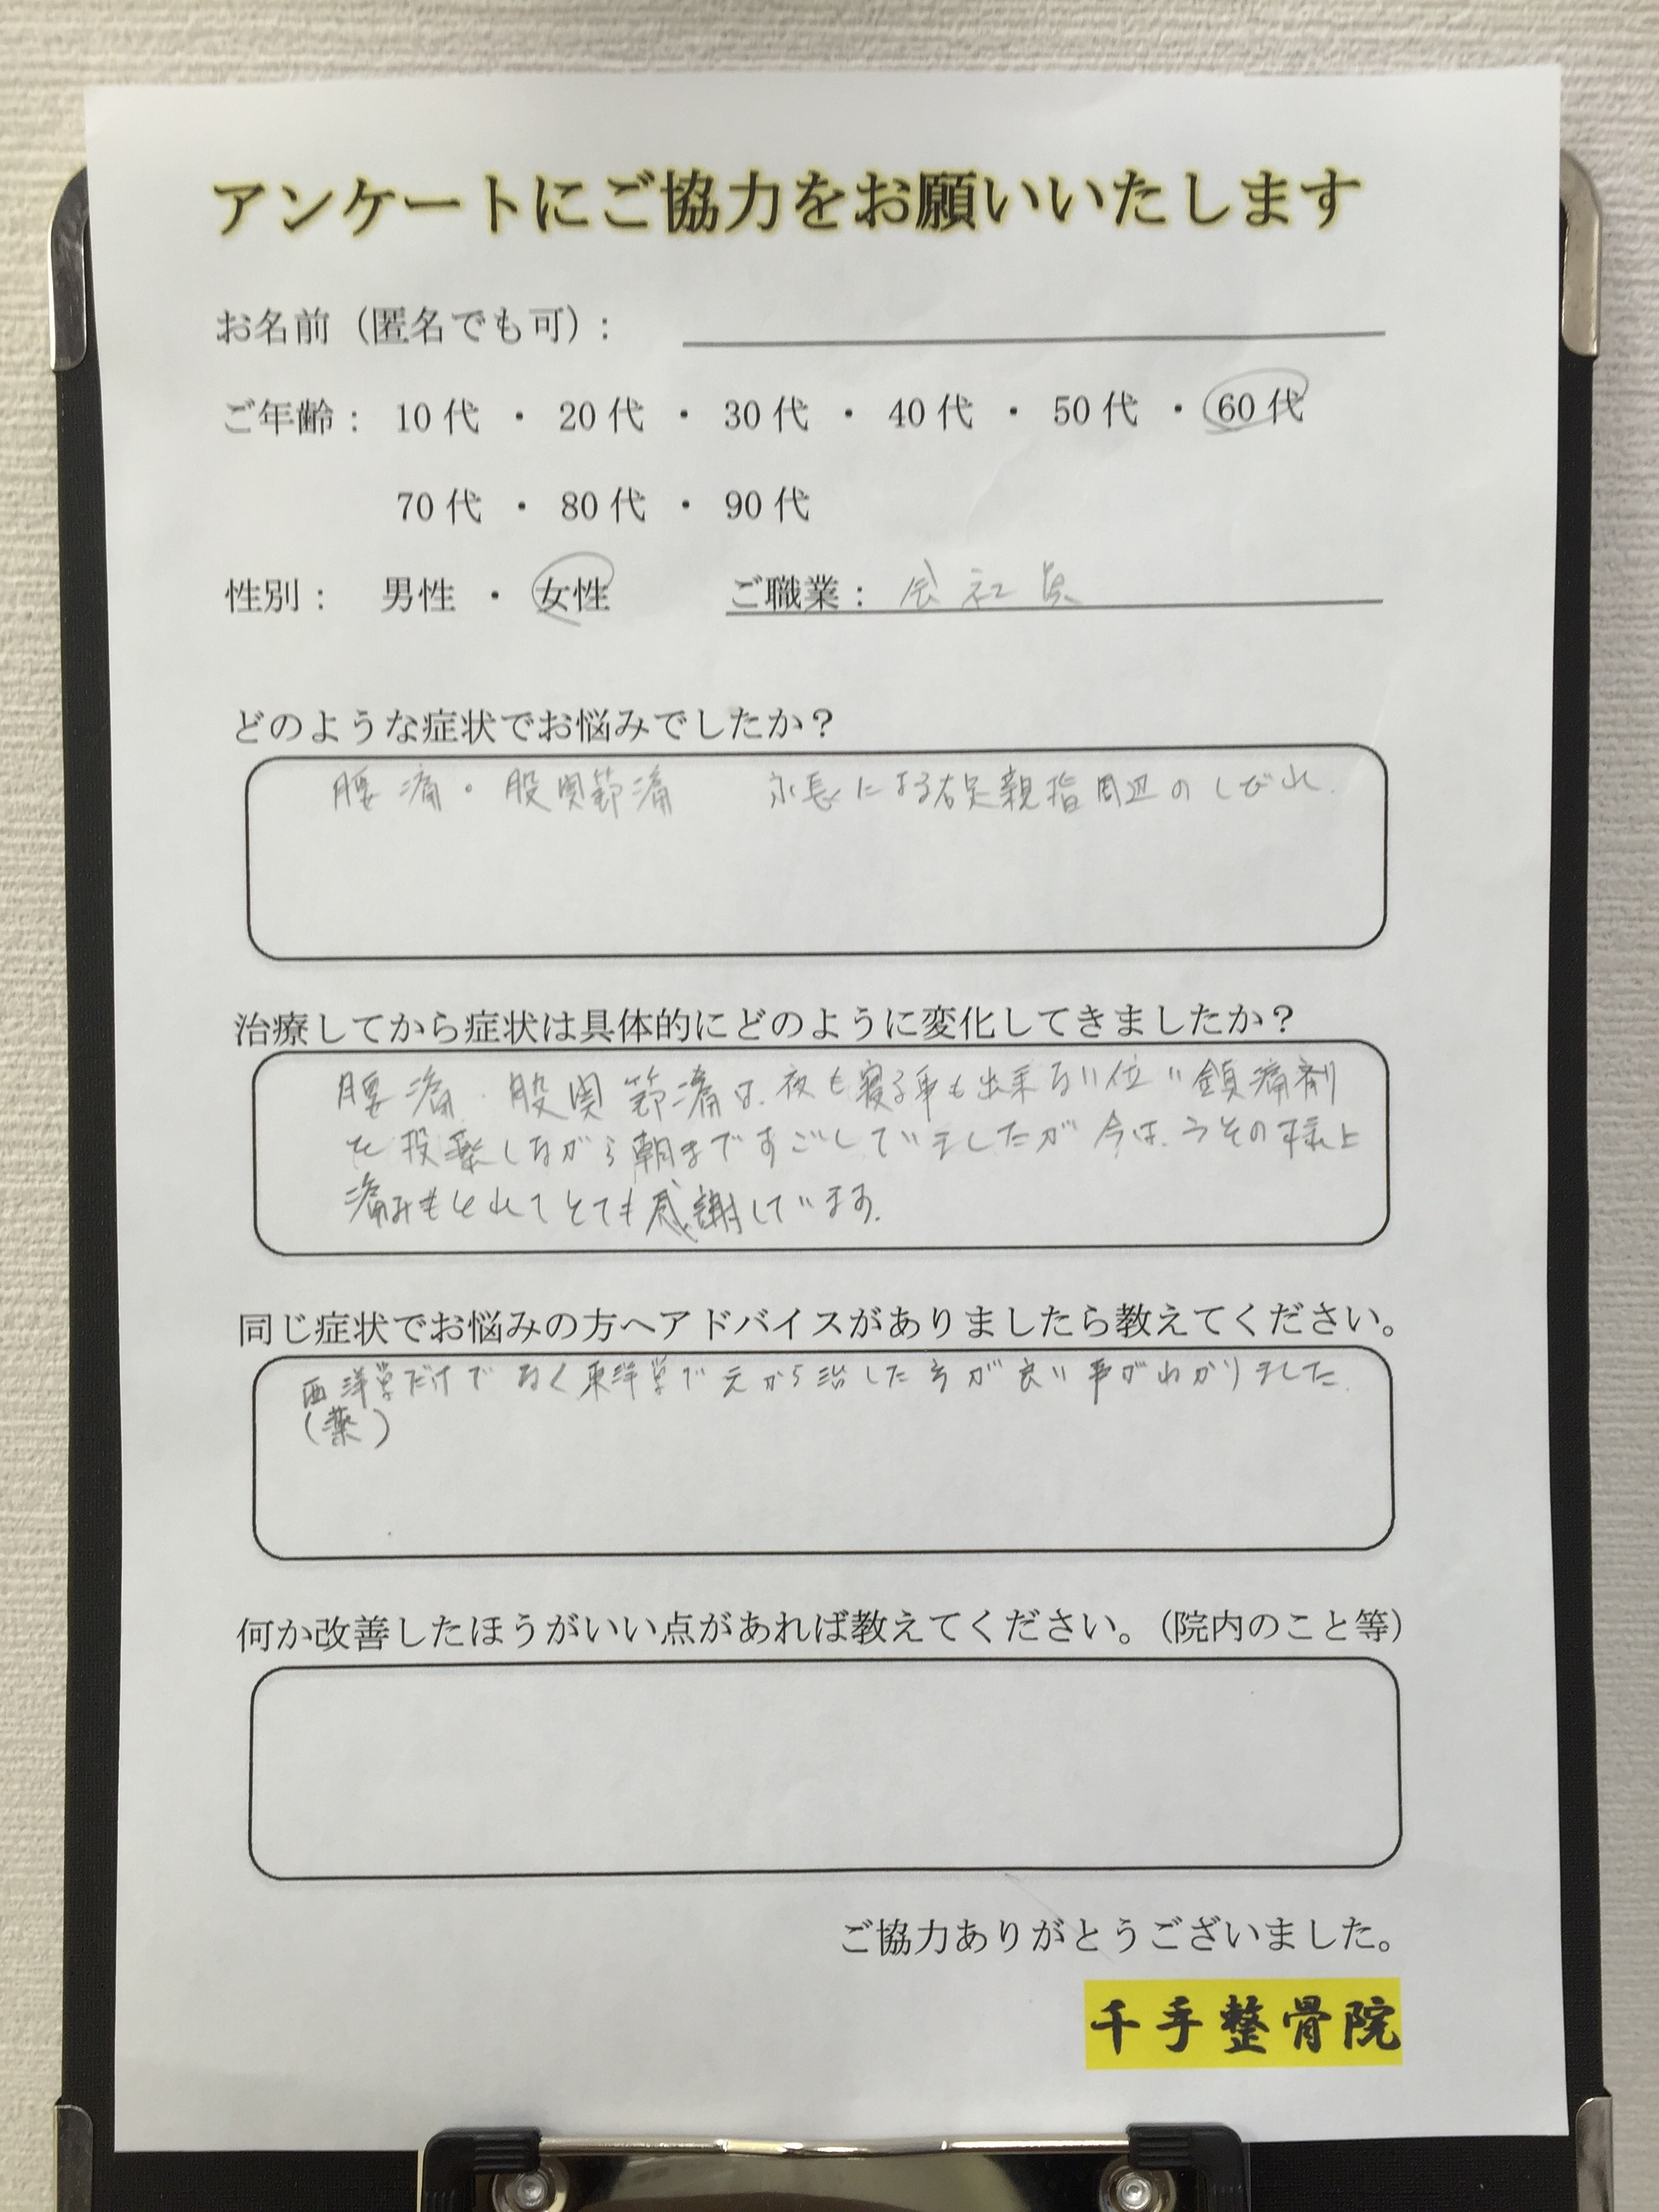 アンケートにご協力をお願いいたします
お名前（匿名でも可）：
ご年齢： 10代 ・ 20代 ・ 30代 ・ 40代 ・ 50代 ・ 60代
70代 ・ 80代 ・ 90代
性別： 男性 ・ 女性 ご職業： 会社員
どのような症状でお悩みでしたか？
腰痛・股関節痛 になる右足親指周辺のしびれ
治療してから症状は具体的にどのように変化してきましたか？
腰痛・股関節痛は、夜も寝る事も出来ない位い鎮痛剤
を投薬しながら朝まですごしていましたが今は、うその様に
痛みもとれてとても感謝しています。
同じ症状でお悩みの方へアドバイスがありましたら教えてください。
西洋学だけでなく東洋学で元から治した方が良い事がわかりました
（薬）
何か改善したほうがいい点があれば教えてください。（院内のこと等）
ご協力ありがとうございました。
千手整骨院